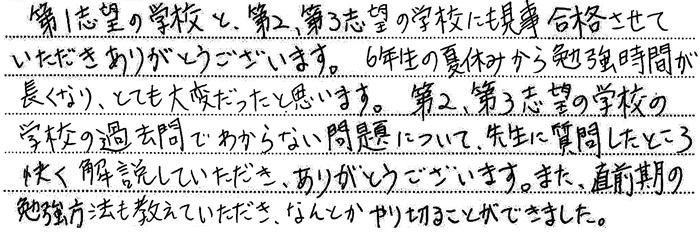 第1志望の学校と、第2、第3志望の学校にも見事合格させて
いただきありがとうございます。 6年生の夏休みから勉強時間が
長くなり、とても大変だったと思います。 第2、第3志望の学校の
学校の過去問でわからない問題について、先生に質問したところ
快く解説していただき、ありがとうございます。また、直前期の
勉強方法も教えていただき、なんとかやり切ることができました。